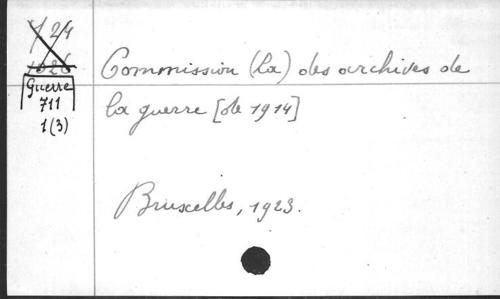 Commission (La) des archives de
la guerre [de 1914]
Guerre
711
1(3)
Bruxelles, 1923.